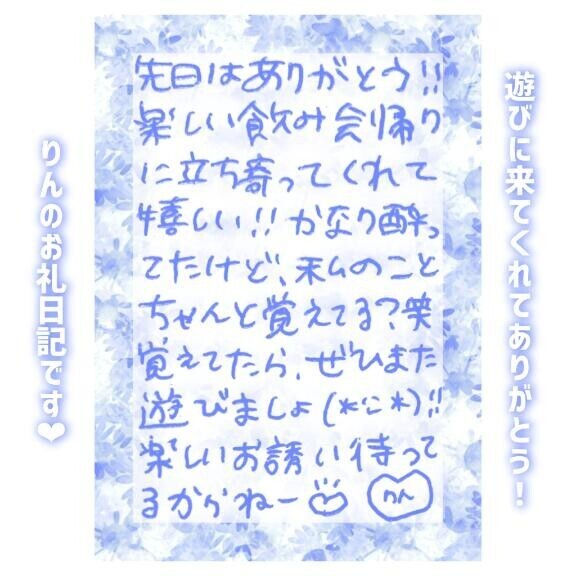 遊びに来てくれてありがとう！
先日はありがとう!!
楽しい飲み会帰り
に立ち寄ってくれて
嬉しい!! かなり酔っ
てたけど、私のこと
ちゃんと覚えてる？笑
覚えてたら、ぜひまた
遊びましょ(*^-^*)!!
楽しいお誘い待って
るからねー
りん
りんのお礼日記です❤